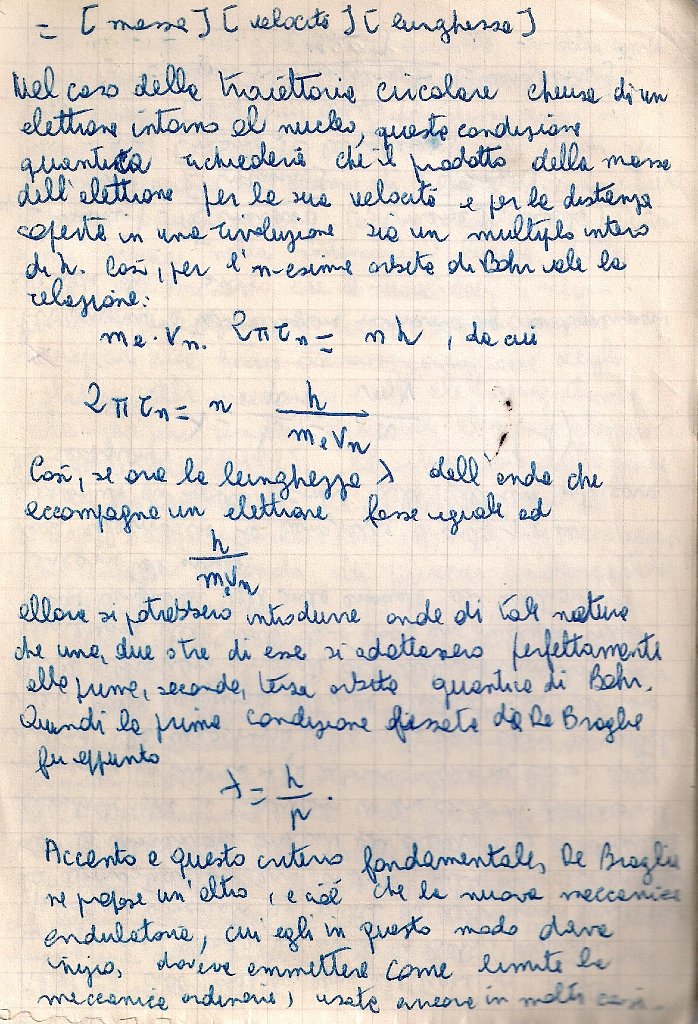 = [massa] [velocità] [lunghezza]
Nel caso della traiettoria circolare chiusa di un
elettrone intorno al nucleo, questa condizione
quantica richiederà che il prodotto della massa
dell'elettrone per la sua velocità e per la distanza
coperta in una rivoluzione sia un multiplo intero
di h. Così, per l'n-esima orbita di Bohr vale la
relazione:
me · vn · 2πrn = n h , da cui
2πrn = n h/(me vn)
Così, se ora la lunghezza λ dell'onda che
accompagna un elettrone fosse uguale ad
h/(me vn)
allora si potrebbero introdurre onde di tale natura
che una, due o tre di esse si adattassero perfettamente
alla prima, seconda, terza orbita quantica di Bohr.
Quindi la prima condizione fissata da De Broglie
fu appunto
λ = h/p .
Accanto a questo criterio fondamentale, De Broglie
ne propose un'altro, e cioè che la nuova meccanica
ondulatoria, cui egli in questo modo dava
inizio, doveva ammettere come limite la
meccanica ordinaria, usata ancora in molti casi.